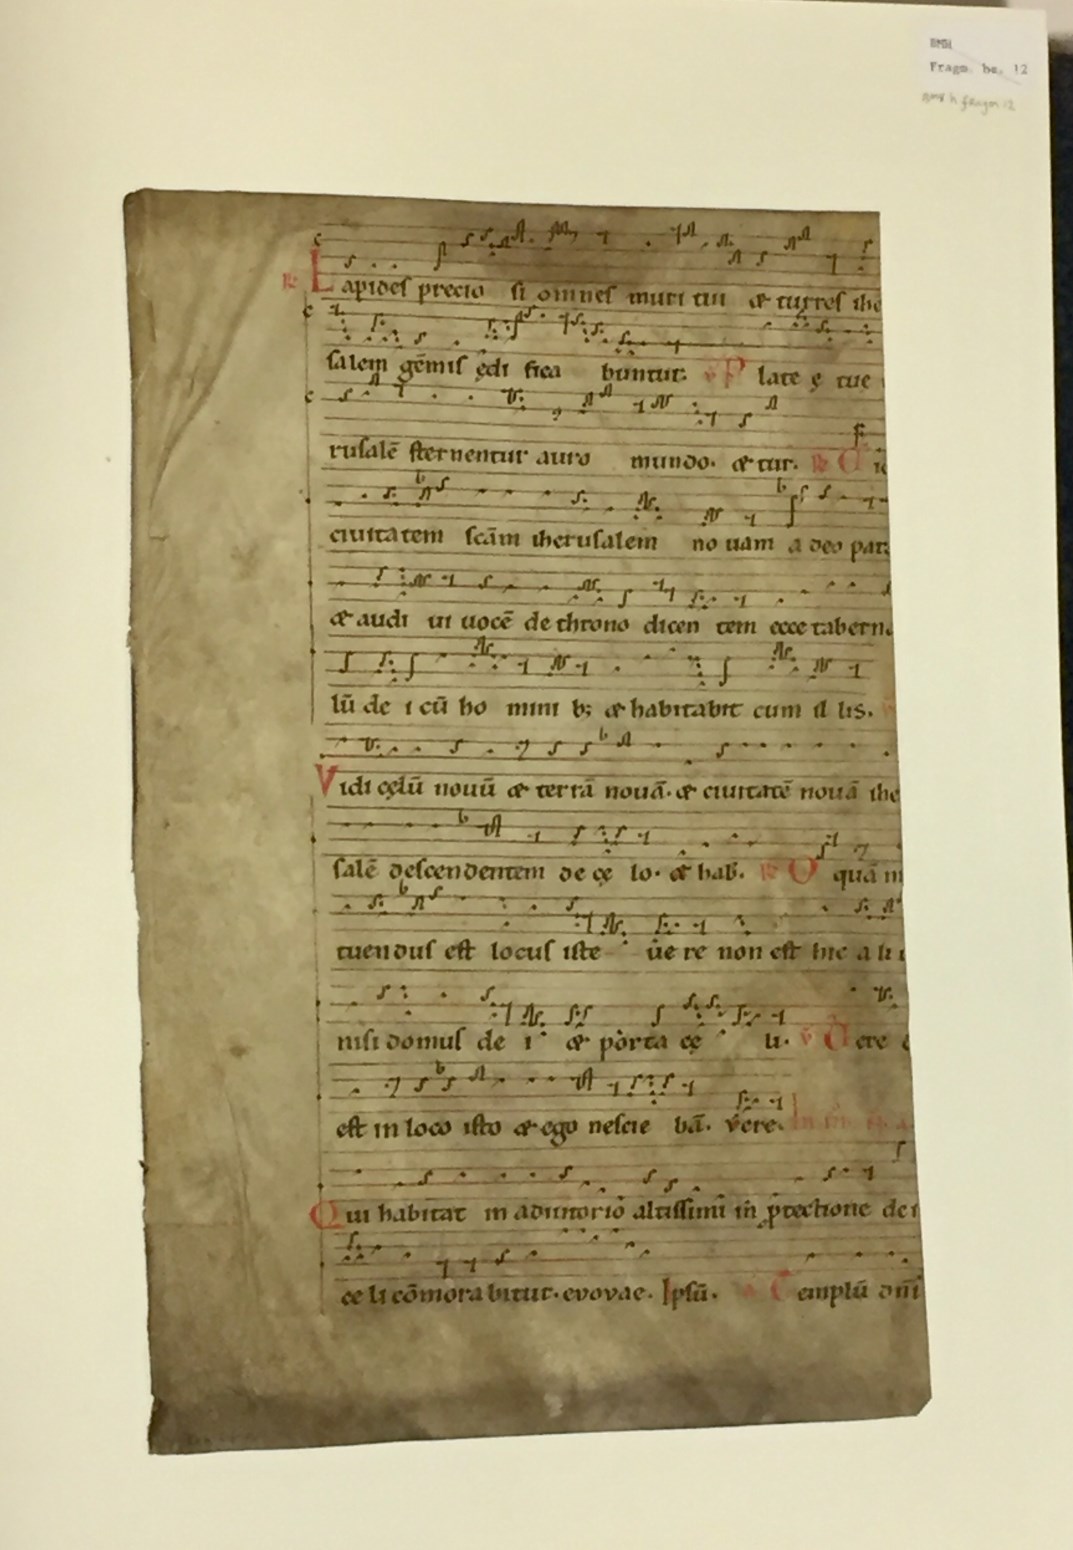 BMH
Fragm. bs. 12
BMH h fragm 12
R Lapides precio si omnes muri tui & turres ihe
salem gēmis ędi fica buntur. V P late ę tue
rusalē sternentur auro mundo. & tur. R
ciuitatem scām iherusalem no uam a deo par
& audi ui uocē de throno dicen tem ecce taberna
lū de i cū ho mini b; & habitabit cum il lis.
Vidi cęlū nouū & terrā nouā. & ciuitatē nouā ihe
salē descendentem de cę lo. & hab. R O quā m
tuendus est locus iste uere non est hic a li
nisi domus de i & porta cę li. V Uere
est in loco isto & ego nescie bā. vere.
Qui habitat in adiutorio altissimi in ptectione dei
ce li cōmora bitur. evovae. Ipsū. Templū dnī